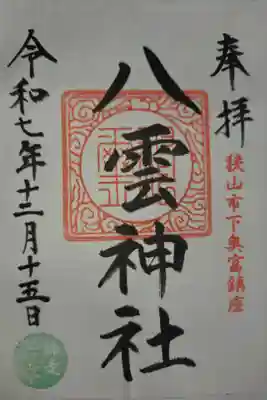 奉拝
狭山市下奥富鎮座
八雲神社
令和七年十二月十五日